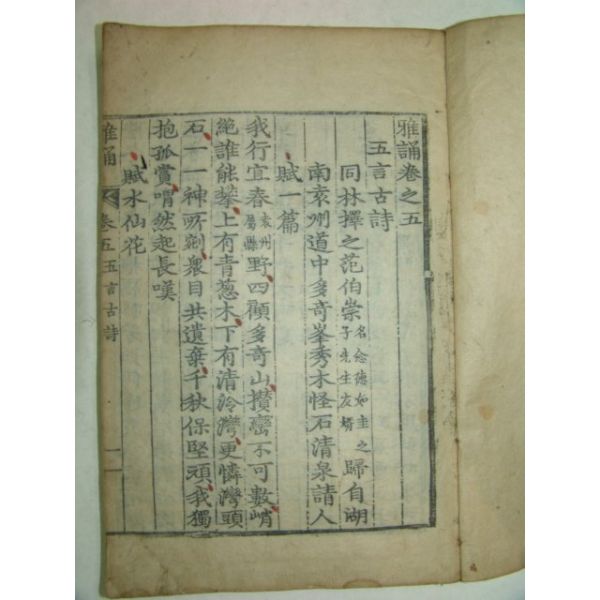 雅誦卷之五
五言古詩
同林擇之范伯崇名念德如圭之子先生友壻歸自湖
南袁州道中多奇峯秀木怪石清泉請人
賦一篇
我行宜春袁州屬縣野四顧多奇山攢巒不可數峭
絶誰能攀上有青葱木下有清泠灣更憐灣頭
石一一神所剜衆目共遺棄千秋保堅頑我獨
抱孤賞喟然起長嘆
賦水仙花
雅誦 卷五 五言古詩 一